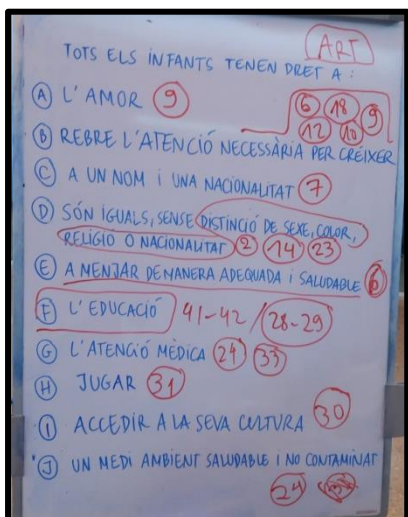 ART
TOTS ELS INFANTS TENEN DRET A :
A L'AMOR 9
6 18 9
12 10
B REBRE L'ATENCIÓ NECESSÀRIA PER CRÉIXER
C A UN NOM I UNA NACIONALITAT 7
D SÓN IGUALS, SENSE DISTINCIÓ DE SEXE, COLOR,
RELIGIÓ O NACIONALITAT 2 14 23
E A MENJAR DE MANERA ADEQUADA I SALUDABLE 6
F L'EDUCACIÓ 41-42 / 28-29
G L'ATENCIÓ MÈDICA 24 33
H JUGAR 31
I ACCEDIR A LA SEVA CULTURA 30
J UN MEDI AMBIENT SALUDABLE I NO CONTAMINAT
24